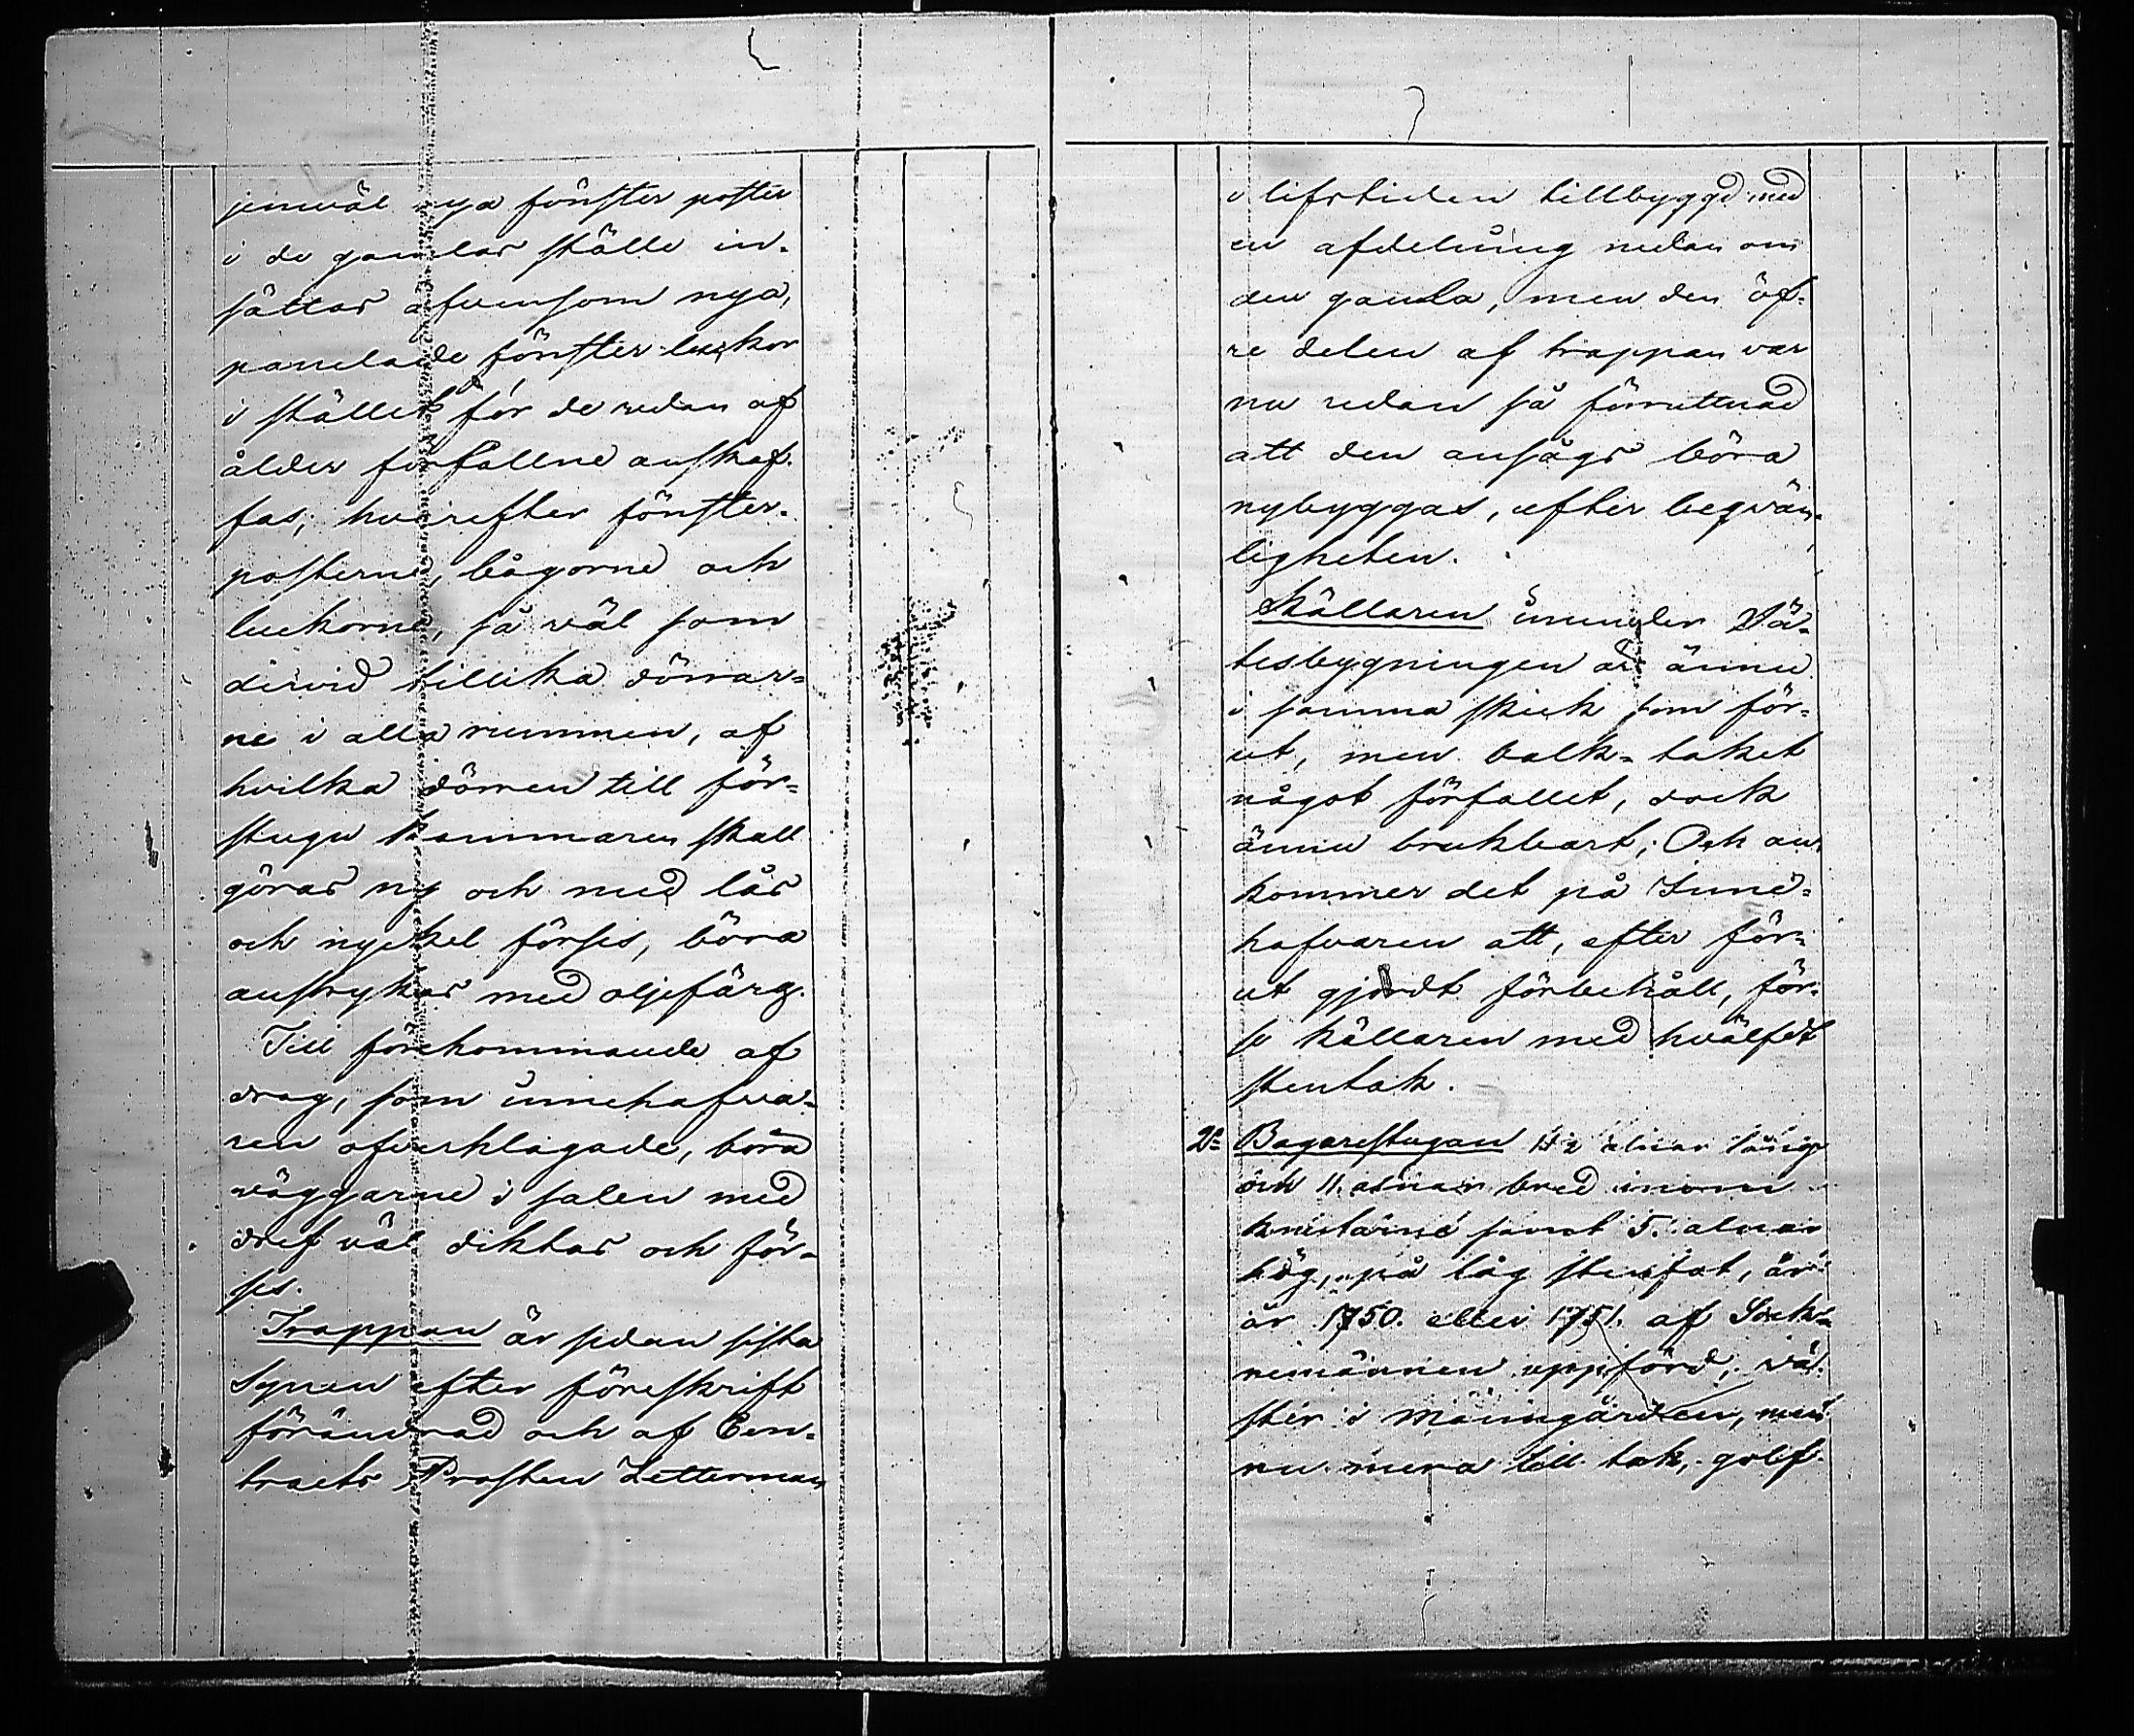 jemväl nya fönster poster
i de gamlas ställe in-
sättas äfvensom nya,
panelade fönster luckor
i stället för de redan af
ålder förfallne anskaf-
fas; hvarefter fönster-
posterne, bågorne och
luckorne, så väl som
dervid tillika dörrar-
ne i alla rummen, af
hvilka dörren till för-
stugu kammaren skall
göras ny och med lås
och nyckel förses, böra
anstrykas med oljefärg.
Till förekommande af
drag, som innehafva-
ren öfverklagade, böra
väggarne i salen med
dref väl diktas och för-
ses.
Trappan är sedan sista
Synen efter föreskrift
förändrad och af Con-
tracts Prosten Zetterman
i lifstiden tillbyggd med
en afdelning nedan om
den gamla, men den öf-
re delen af trappan var
nu redan så förruttnad
att den ansågs böra
nybyggas, efter beqväm-
ligheten.
Källaren innunder Sä-
tesbygningen är ännu
i samma skick som för-
ut, men balk-taket
något förfallet, dock
ännu brukbart; Och an-
kommer det på Inne-
hafvaren att, efter för-
ut gjordt förbehåll, för-
se källaren med hvälfdt
stentak.
2o Bagarestugan 12 alnar lång
och 11. alnar bred inom
knutarne samt 5. alnar
hög, på låg stenfot, är
år 1750. eller 1751. af Sock-
nemännen uppförd, vä-
ster i mangården, men
nu mera till tak, golf